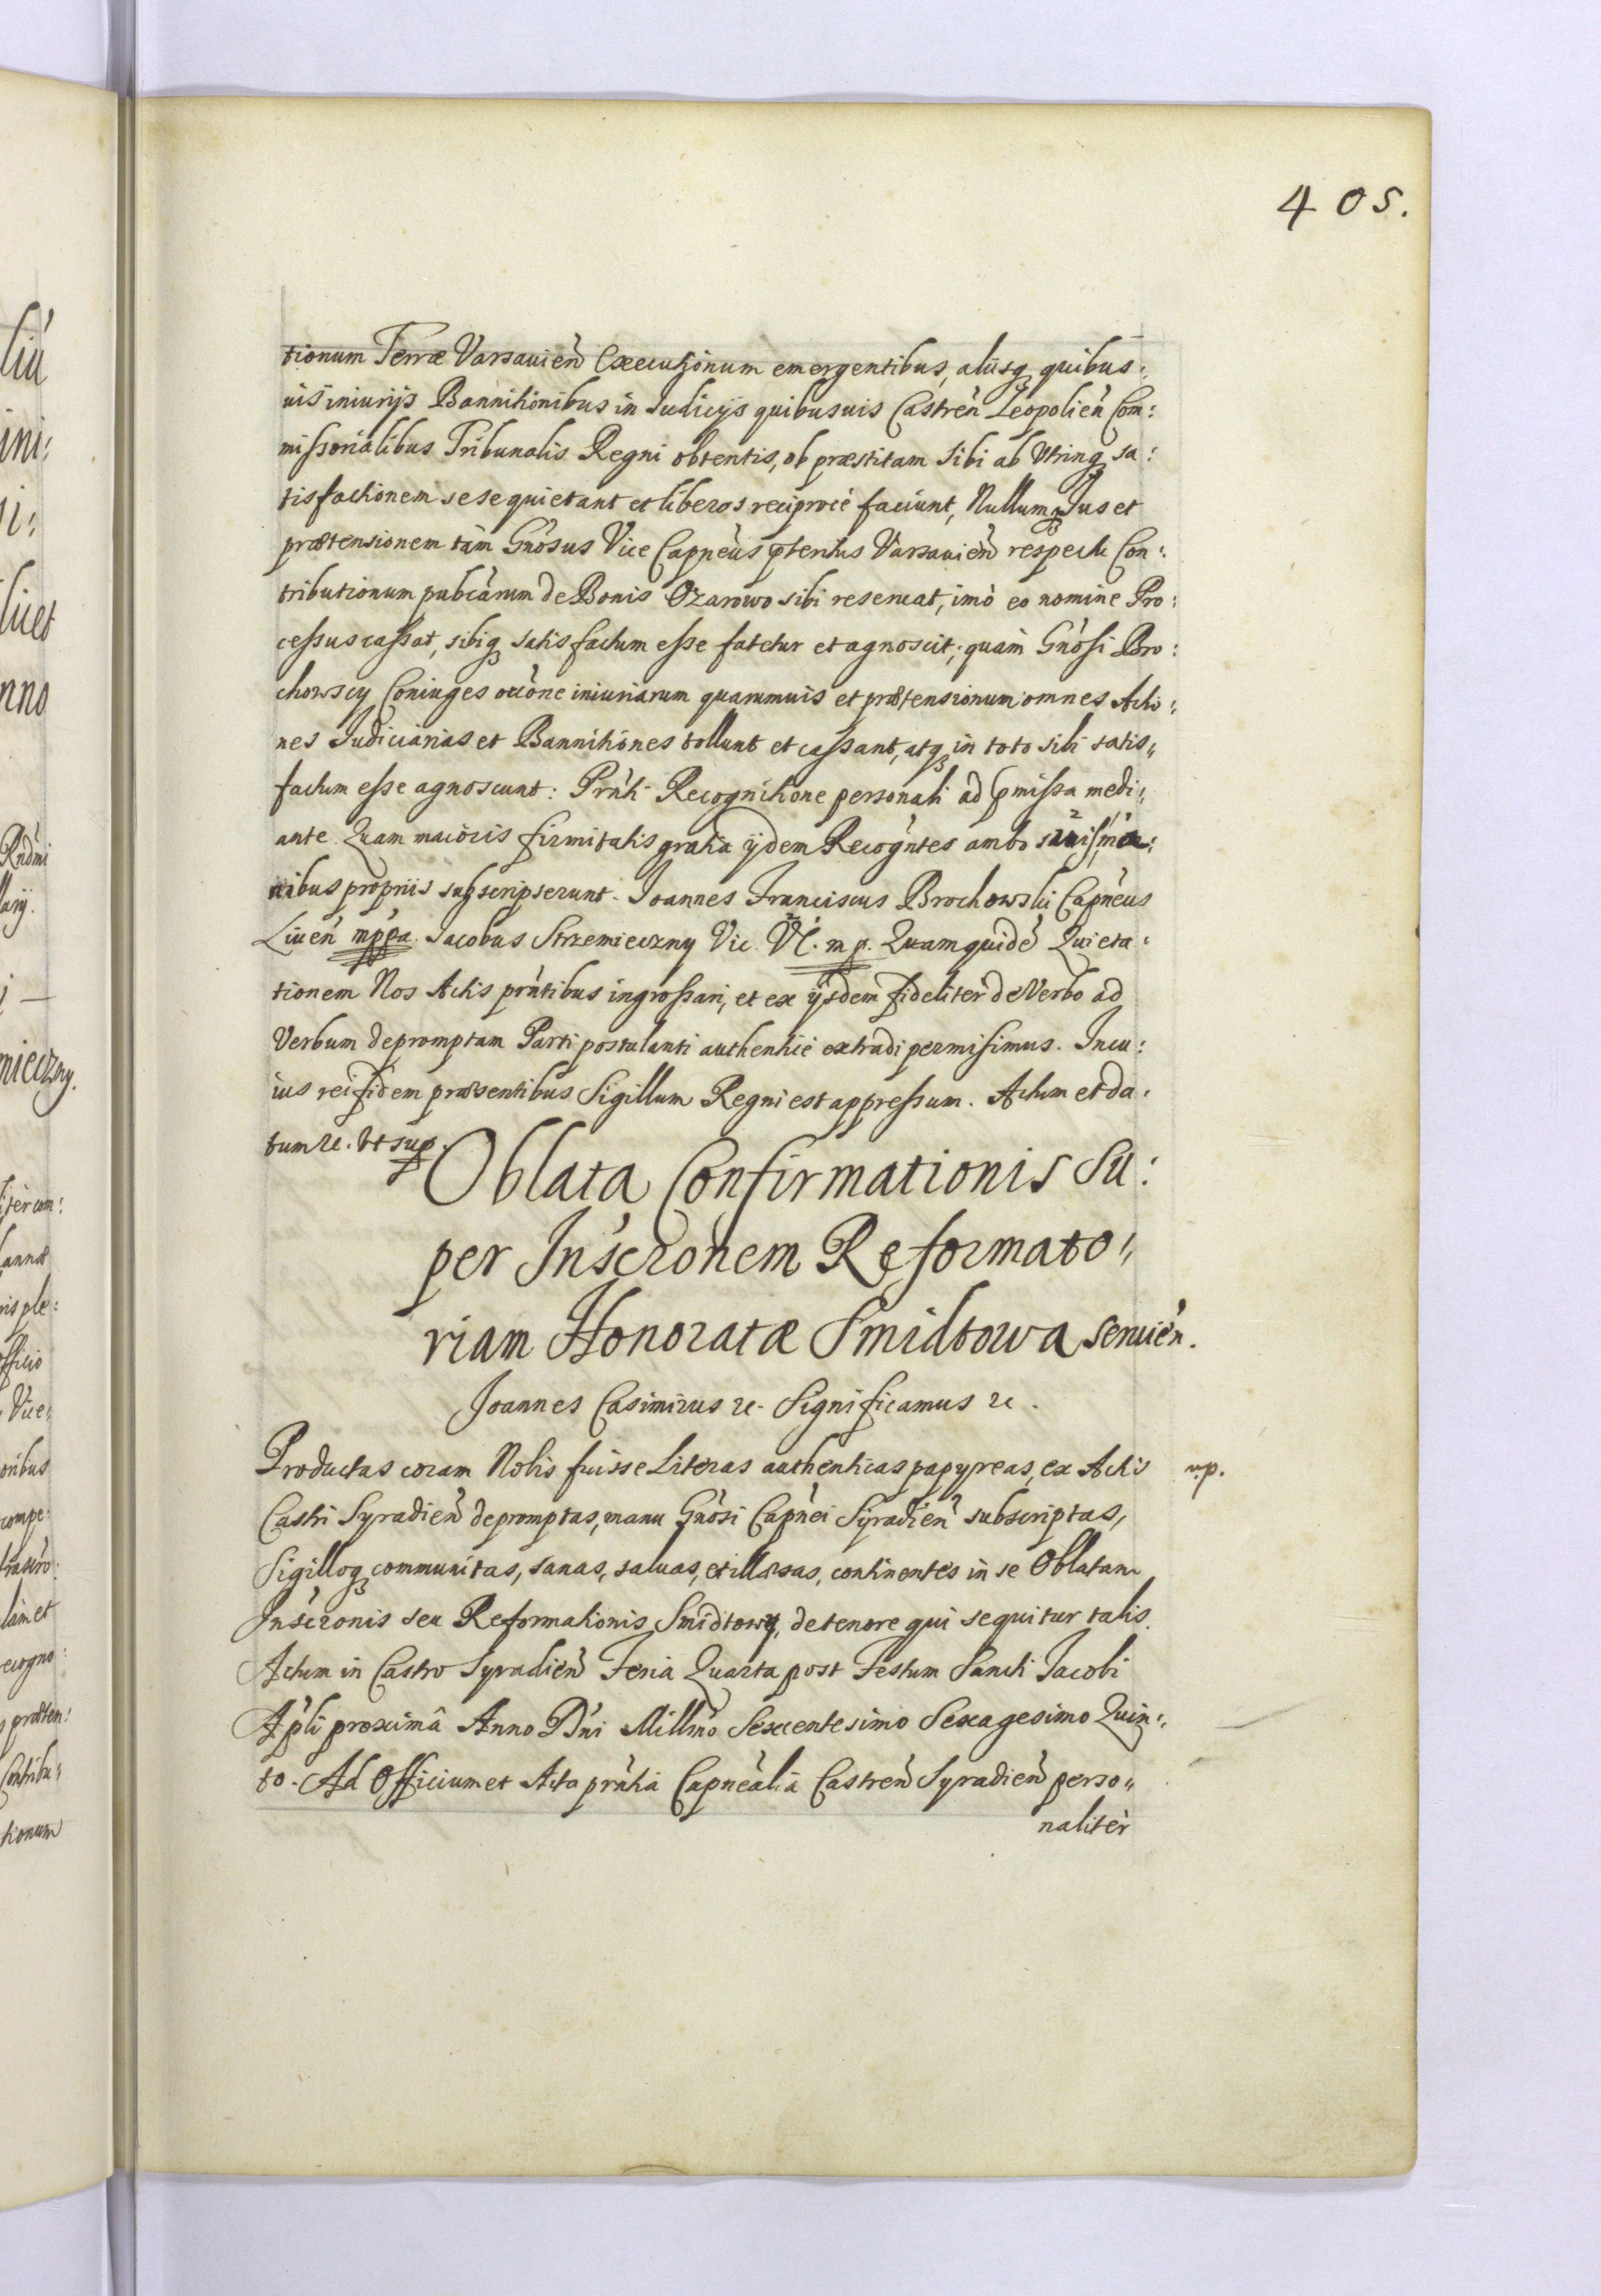 405.
tionum Terræ Varsavień Executionum emergentibus, aliisq; quibus:
uis iniurijs Bannitionibus in Judicijs quibusuis Castreń Leopolień Com:
missorialibus Tribunalis Regni obtentis, ob præstitam sibi ab Utrinq; sa:
tisfactionem sese quietant et liberos reciprocè faciunt, Nullumq; Jus et
prætensionem tàm Gńosus Vice Capńeus Varsauień respectu Con:
tributionum pubcárum de Bonis Ożarowo sibi reseruat, imò eo nomine Pro:
cessus cassat, sibiq; satisfactum esse fatetur et agnoscit; quàm Gńosi Bro:
chowscy Coniuges occóne iniuriarum quarumuis et prætensionum omnes Actio:
nes Judiciarias et Bannitiones tollunt et cassant, atq; in toto sibi satis:
factum esse agnoscunt: Prńti Recognitione personali ad pmissa medi:
ante. Quam maioris firmitatis gratia ijdem Recogńtes ambo suis ma:
nibus proprijs subscripserunt. Joannes Franciscus Brochowski Capńeus
Liueń mppa. Jacobus Strzemieczny Vic. V. C. m p. Quam quidé Quieta:
tionem Nos Actis prńtibus ingrossari, et ex ijsdem fideliter de Verbo ad
Verbum depromptam Parti postulanti authenticè extradi permisimus. In cu:
ius rei fidem præsentibus Sigillum Regni est appressum. Actum et da:
tum &c. Ut sup.
Oblata Confirmationis Su:
per Inścrónem Reformato:
riam Honoratæ Smidtowa seruień.
Joannes Casimirus &c. Significamus &c.
Productas coram Nobis fuisse Literas authenticas papyreas, ex Actis
Castri Syradień depromptas, manu Gńosi Capńei Syradień subscriptas,
Sigilloq; communitas, sanas, saluas, et illæsas, continentes in se Oblatam
Inścronis seu Reformationis Smidtowy, de tenore qui sequitur talis.
Actum in Castro Syradień Feria Quarta post Festum Sancti Jacobi
Apli proximâ Anno Dńi Millmo Sexcentesimo Sexagesimo Quin:
to. Ad Officium et Acta prńtia Capńealia Castreń Syradień perso:
naliter